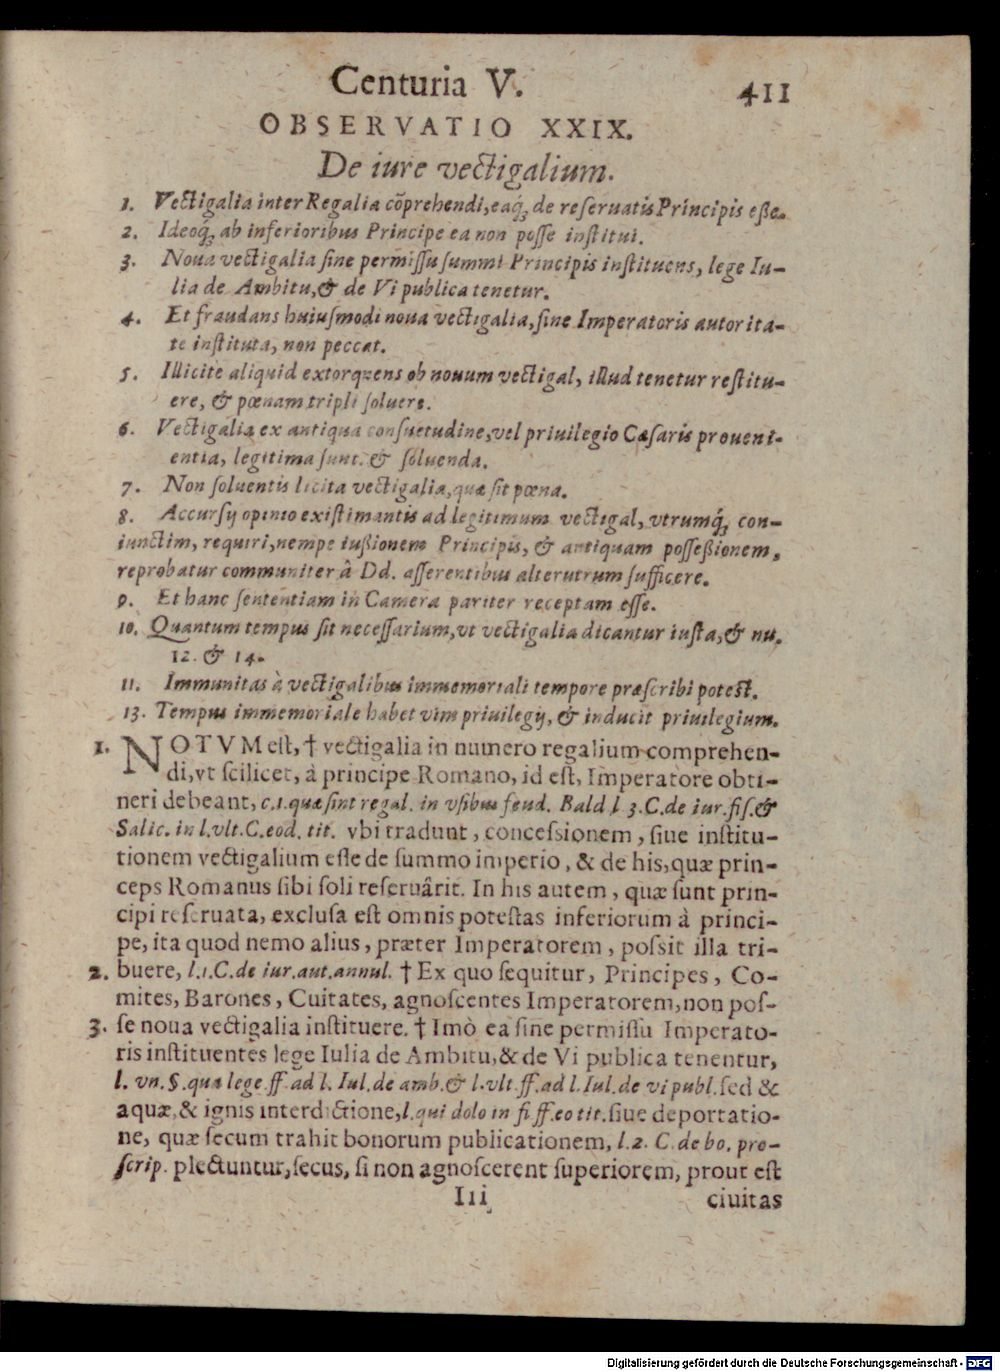 Centuria V. 411
OBSERVATIO XXIX.
De iure vectigalium.
1. Vectigalia inter Regalia cõprehendi, eaq́ꝫ de reseruatis Principis eße.
2. Ideoq́ꝫ ab inferioribus Principe ea non posse institui.
3. Noua vectigalia sine permissu summi Principis instituens, lege Iu-
lia de Ambitu, & de Vi publica tenetur.
4. Et fraudans huiusmodi noua vectigalia, sine Imperatoris autorita-
te instituta, non peccat.
5. Illicite aliquid extorquens ob nouum vectigal, illud tenetur restitu-
ere, & pœnam tripli soluere.
6. Vectigalia ex antiqua consuetudine, vel priuilegio Cæsaris proueni-
entia, legitima sunt. & soluenda.
7. Non soluentis licita vectigalia, quæ sit pœna.
8. Accursij opinio existimantis ad legitimum vectigal, vtrumq́ꝫ con-
iunctim, requiri, nempe iußionem Principis, & antiquam posseßionem,
reprobatur communiter à Dd. asserentibus alterutrum sufficere.
9. Et hanc sententiam in Camera pariter receptam esse.
10. Quantum tempus sit necessarium, vt vectigalia dicantur iusta, & nu.
12. & 14.
11. Immunitas à vectigalibus immemoriali tempore præscribi potest.
13. Tempus immemoriale habet vim priuilegij, & inducit priuilegium.
1. NOTVM est, † vectigalia in numero regalium comprehen-
di, vt scilicet, à principe Romano, id est, Imperatore obti-
neri debeant, c.1. quæ sint regal. in vsibus feud. Bald l 3. C. de iur. fis. &
Salic. in l. vlt. C. eod. tit. vbi tradunt, concessionem, siue institu-
tionem vectigalium esse de summo imperio, & de his, quæ prin-
ceps Romanus sibi soli reseruârit. In his autem, quæ sunt prin-
cipi reseruata, exclusa est omnis potestas inferiorum à princi-
pe, ita quod nemo alius, præter Imperatorem, possit illa tri-
2. buere, l.1. C. de iur. aut. annul. † Ex quo sequitur, Principes, Co-
mites, Barones, Cuitates, agnoscentes Imperatorem, non pos-
3. se noua vectigalia instituere. † Imò ea sine permissu Imperato-
ris instituentes lege Iulia de Ambitu, & de Vi publica tenentur,
l. vn. §. qua lege ff. ad l. Iul. de amb. & l. vlt. ff. ad l. Iul. de vi publ. sed &
aquæ, & ignis interdictione, l. qui dolo in fi ff. eo tit. siue deportatio-
ne, quæ secum trahit bonorum publicationem, l. 2. C. de bo. pro-
scrip. plectuntur, secus, si non agnoscerent superiorem, prout est
Iii ciuitas
Digitalisierung gefördert durch die Deutsche Forschungsgemeinschaft - DFG